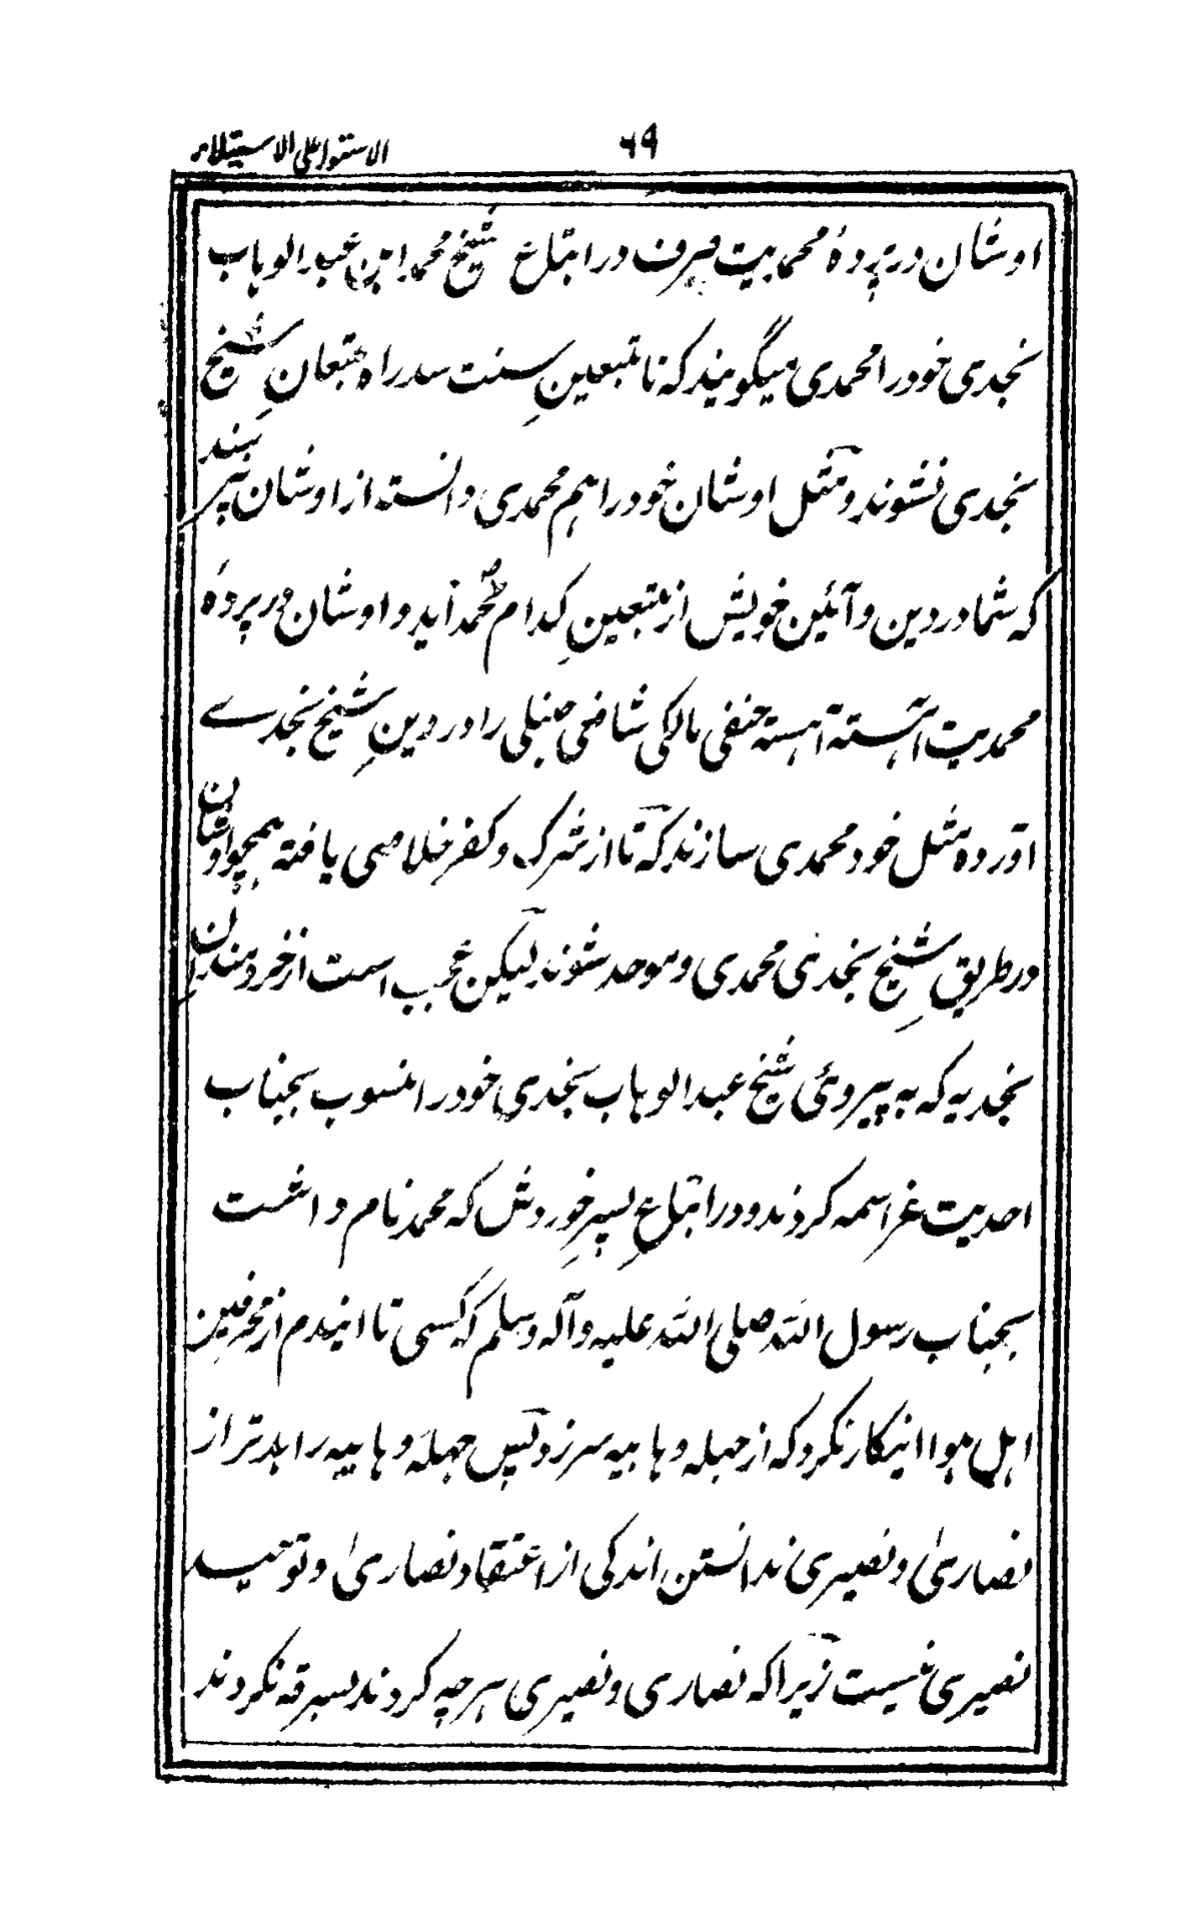 ۶۹
الاستوا علی الاستیلاء
اوشان در پردهٔ محمدیت صرف در اتباع شیخ محمد ابن عبد الوہاب
نجدی خود را محمدی میگویند که تا متبعینِ سنت سد راه متبعانِ شیخ
نجدی نشوند و مثل اوشان خود را ہم محمدی دانسته از اوشان نپرسند
که شما در دین و آئین خویش از متبعینِ کدام محمد آید و اوشان در پردهٔ
محمدیت آہسته آہسته حنفی مالکی شافعی حنبلی را در دینِ شیخ نجدے
آورده مثل خود محمدی سازند که تا از شرک و کفر خلاصی یافته ہمچو اوشان
در طریقِ شیخ نجدی محمدی و موحد شوند لیکن عجب است از خردمندان
نجدیه که به پیروئی شیخ عبد الوہاب نجدی خود را منسوب بجناب
احدیت عز اسمه کردند و در اتباعِ پسرِ خوردش که محمد نام داشت
بجناب رسول الله صلی الله علیه وآله وسلم که کسی تا ایندم از محرفین
اہل ہوا اینکار نکرد که از جہله وہابیه سرزد پس جہلهٔ وہابیه را بدتر از
نصاریٰ و نصیری ندانستن اندکی از اعتقاد نصاریٰ و توحید
نصیری نیست زیرا که نصاری و نصیری ہرچه کردند بسرقه نکردند